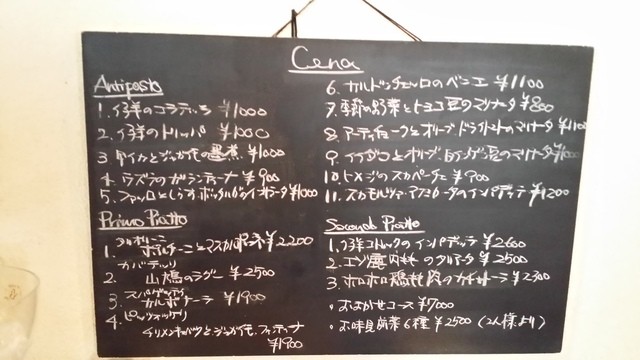 Cena
Antipasto
1. イ子羊のコラテッラ ¥1000
2. イ子羊のトリッパ ¥1000
3. ヤリイカとじゃが芋の煮 ¥1000
4. ウズラのガランティーナ ¥900
5. ファッロとしらす、ボッタルガのインサラータ ¥1000
6. カルドンチェッロのベニエ ¥1100
7. 季節の野菜とヒヨコ豆のマリナータ ¥800
8. アーティチョークとオリーブ ドライトマトのマリナータ ¥1100
9. イイダコとオリーブ 白インゲン豆のマリナータ ¥1000
10. ヒメジのスカペーチェ ¥900
11. スカモルツァ・アフミカータのインパデッラ ¥1200
Primo Piatto
1. タリオリーニ
ポルチーニとマスカルポーネ ¥2200
カバテッリ
2. 山鳩のラグー ¥2500
スパゲッティ
3. カルボナーラ ¥1900
4. ピッツォッケリ
チリメンキャベツとじゃが芋、フォンティーナ
¥1900
Secondo Piatto
1. イ子羊コトレッタのインパデッラ ¥2600
2. エゾ鹿内料のタリアータ ¥2500
3. ホロホロ鶏モモ肉のカチャトーラ ¥2300
・おまかせコース ¥7000
・お味見前菜6種 ¥2500 (2人様より)